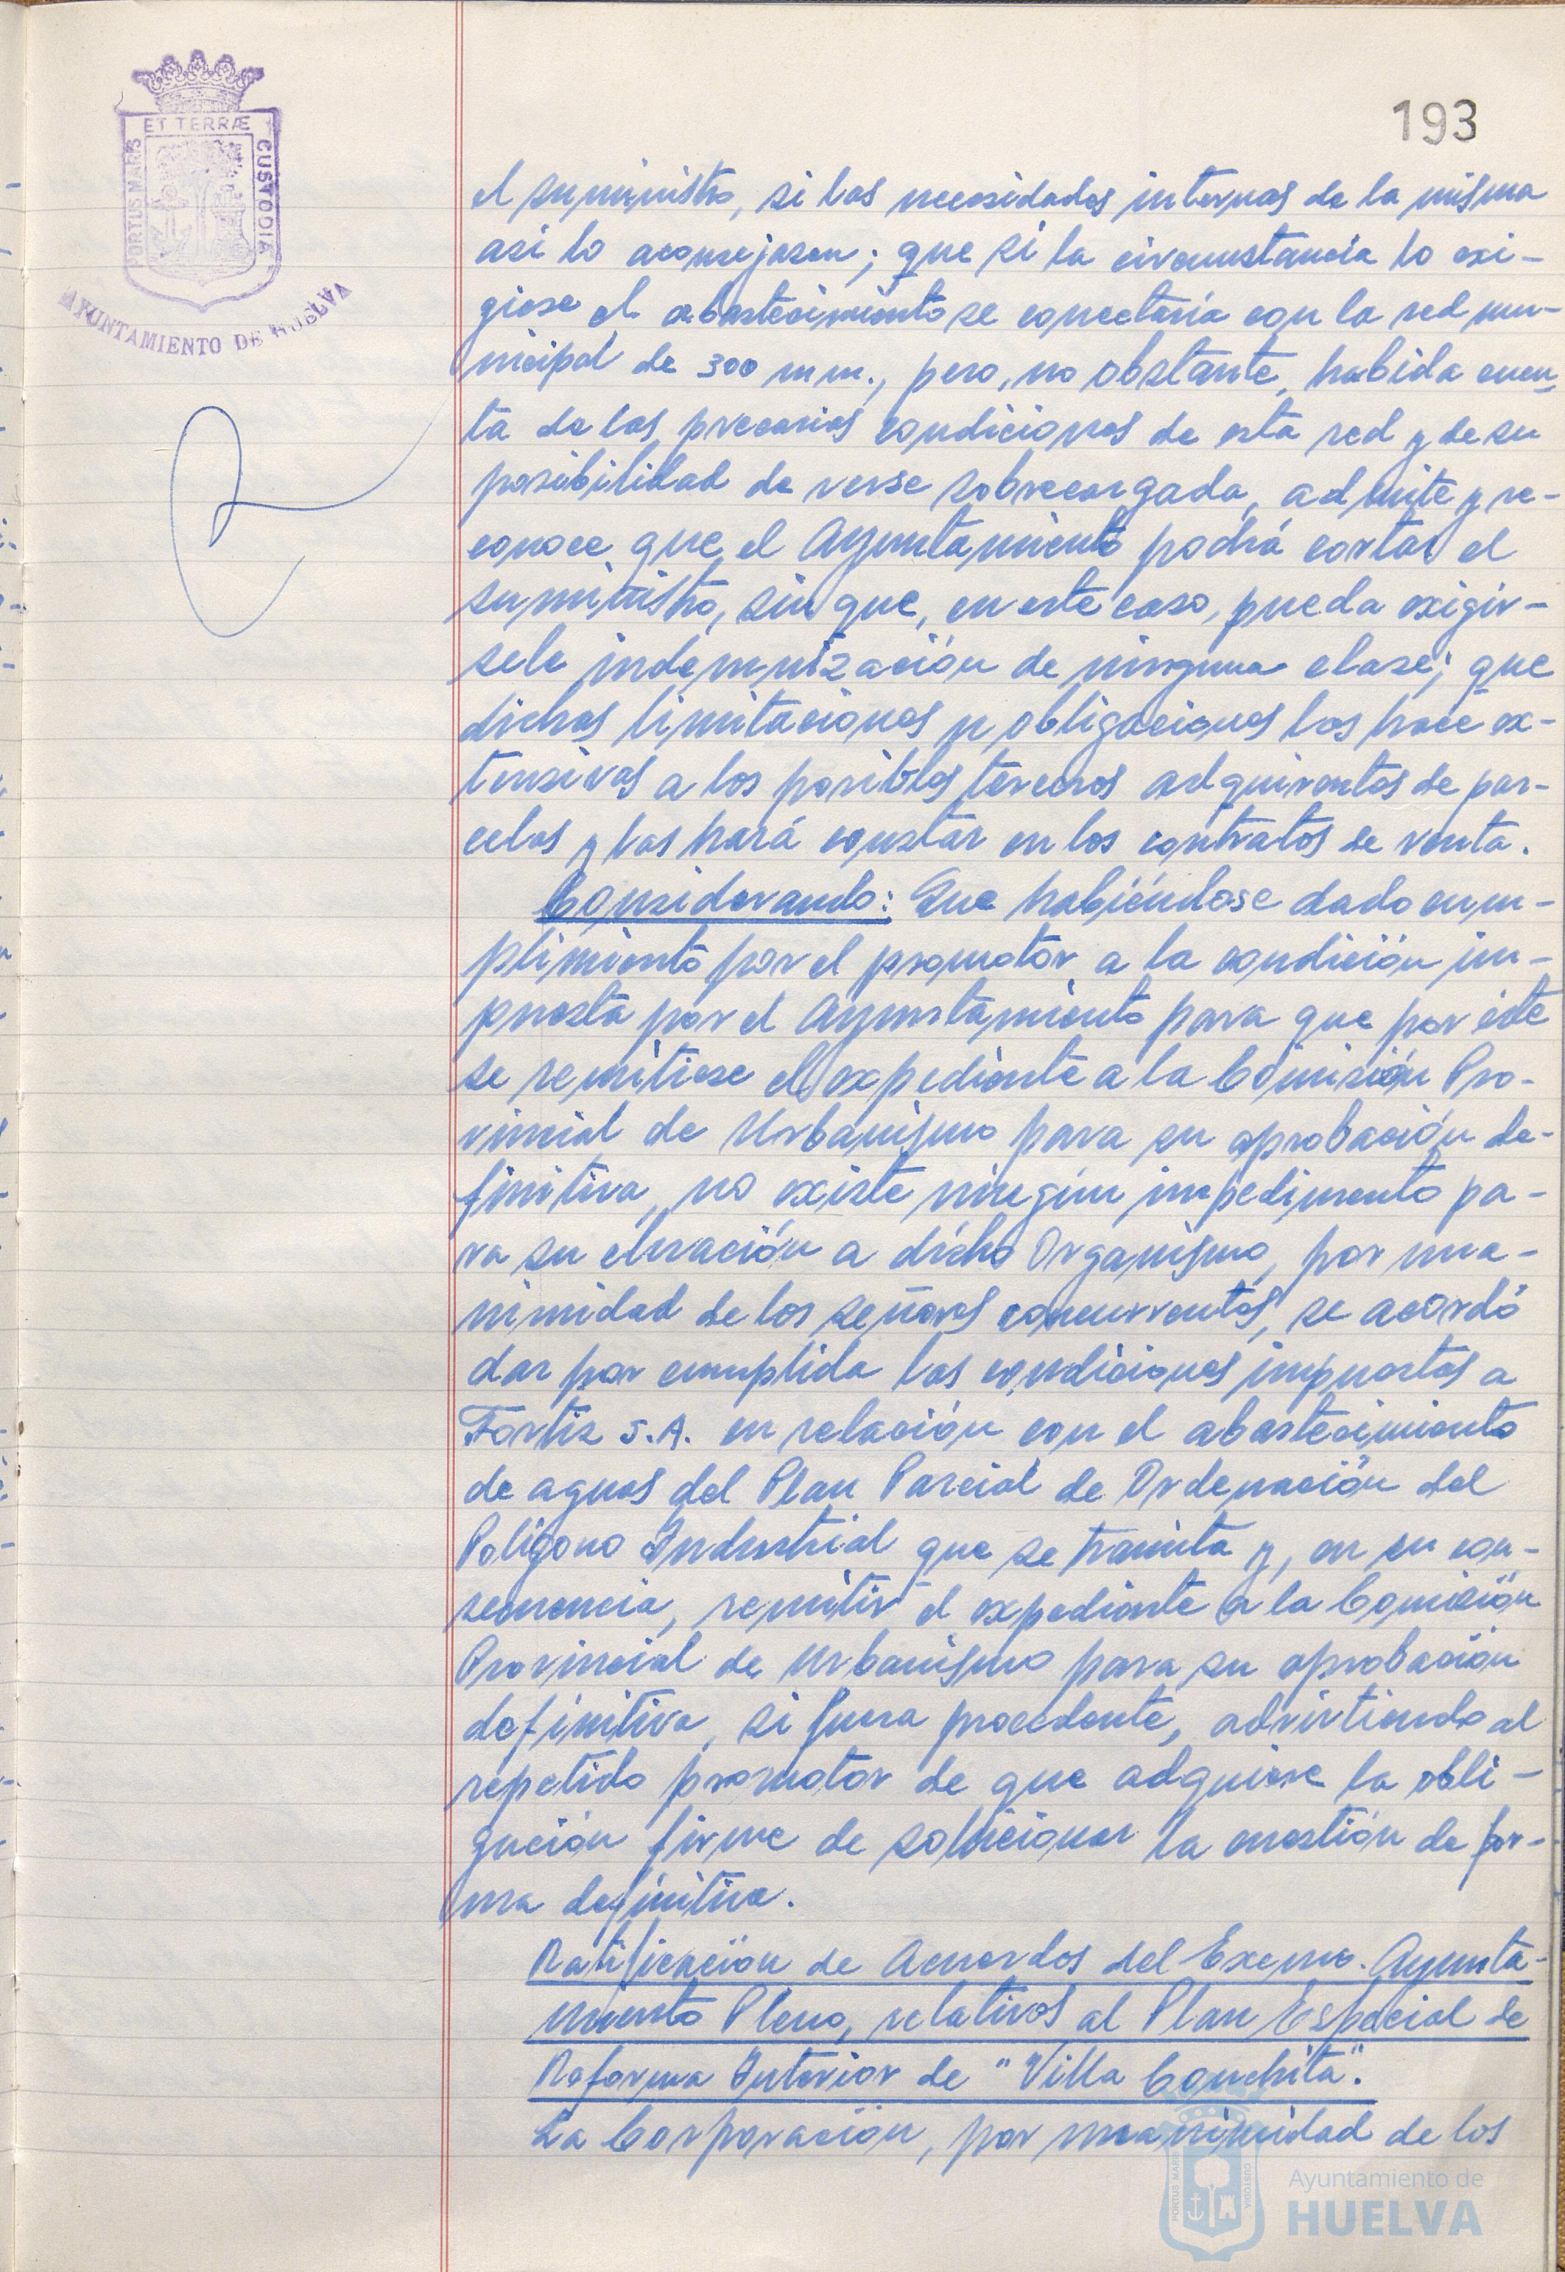 ET TERRÆ
PORTUS MARIS
CUSTODIA
AYUNTAMIENTO DE HUELVA
193
el suministro, si las necesidades internas de la misma
asi lo aconsejasen; que si la circunstancia lo exi-
giese el abastecimiento se conectaría con la red mu-
nicipal de 300 mm., pero, no obstante, habida cuen-
ta de las precarias condiciones de esta red y de su
posibilidad de verse sobrecargada, admite y re-
conoce que el Ayuntamiento podrá cortar el
suministro, sin que, en este caso, pueda exigir-
sele indemnización de ninguna clase; que
dichas limitaciones y obligaciones las hace ex-
tensivas a los posibles terceros adquirentes de par-
celas y las hará constar en los contratos de venta.
Considerando: Que habiéndose dado cum-
plimiento por el promotor a la condición im-
puesta por el Ayuntamiento para que por éste
se remitiese el expediente a la Comisión Pro-
vincial de Urbanismo para su aprobación de-
finitiva, no existe ningún impedimento pa-
ra su elevación a dicho Organismo, por una-
nimidad de los señores concurrentes, se acordó
dar por cumplida las condiciones impuestas a
Fortis S.A. en relación con el abastecimiento
de aguas del Plan Parcial de Ordenación del
Poligono Industrial que se tramita y, en su con-
secuencia, remitir el expediente a la Comisión
Provincial de Urbanismo para su aprobación
definitiva, si fuera procedente, advirtiendo al
repetido promotor de que adquiere la obli-
gación firme de solucionar la cuestión de for-
ma definitiva.
Ratificación de Acuerdos del Excmo. Ayunta-
miento Pleno, relativos al Plan Especial de
Reforma Interior de "Villa Conchita".
La Corporación, por unanimidad de los
PORTUS MARIS
CUSTODIA
Ayuntamiento de
HUELVA